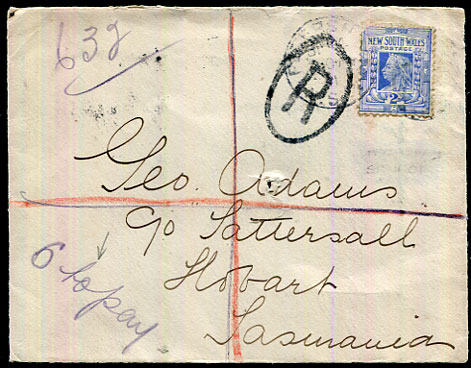 632
R
NEW SOUTH WALES
POSTAGE
Geo. Adams
c/o Tattersall
Hobart
Tasmania
6 to pay